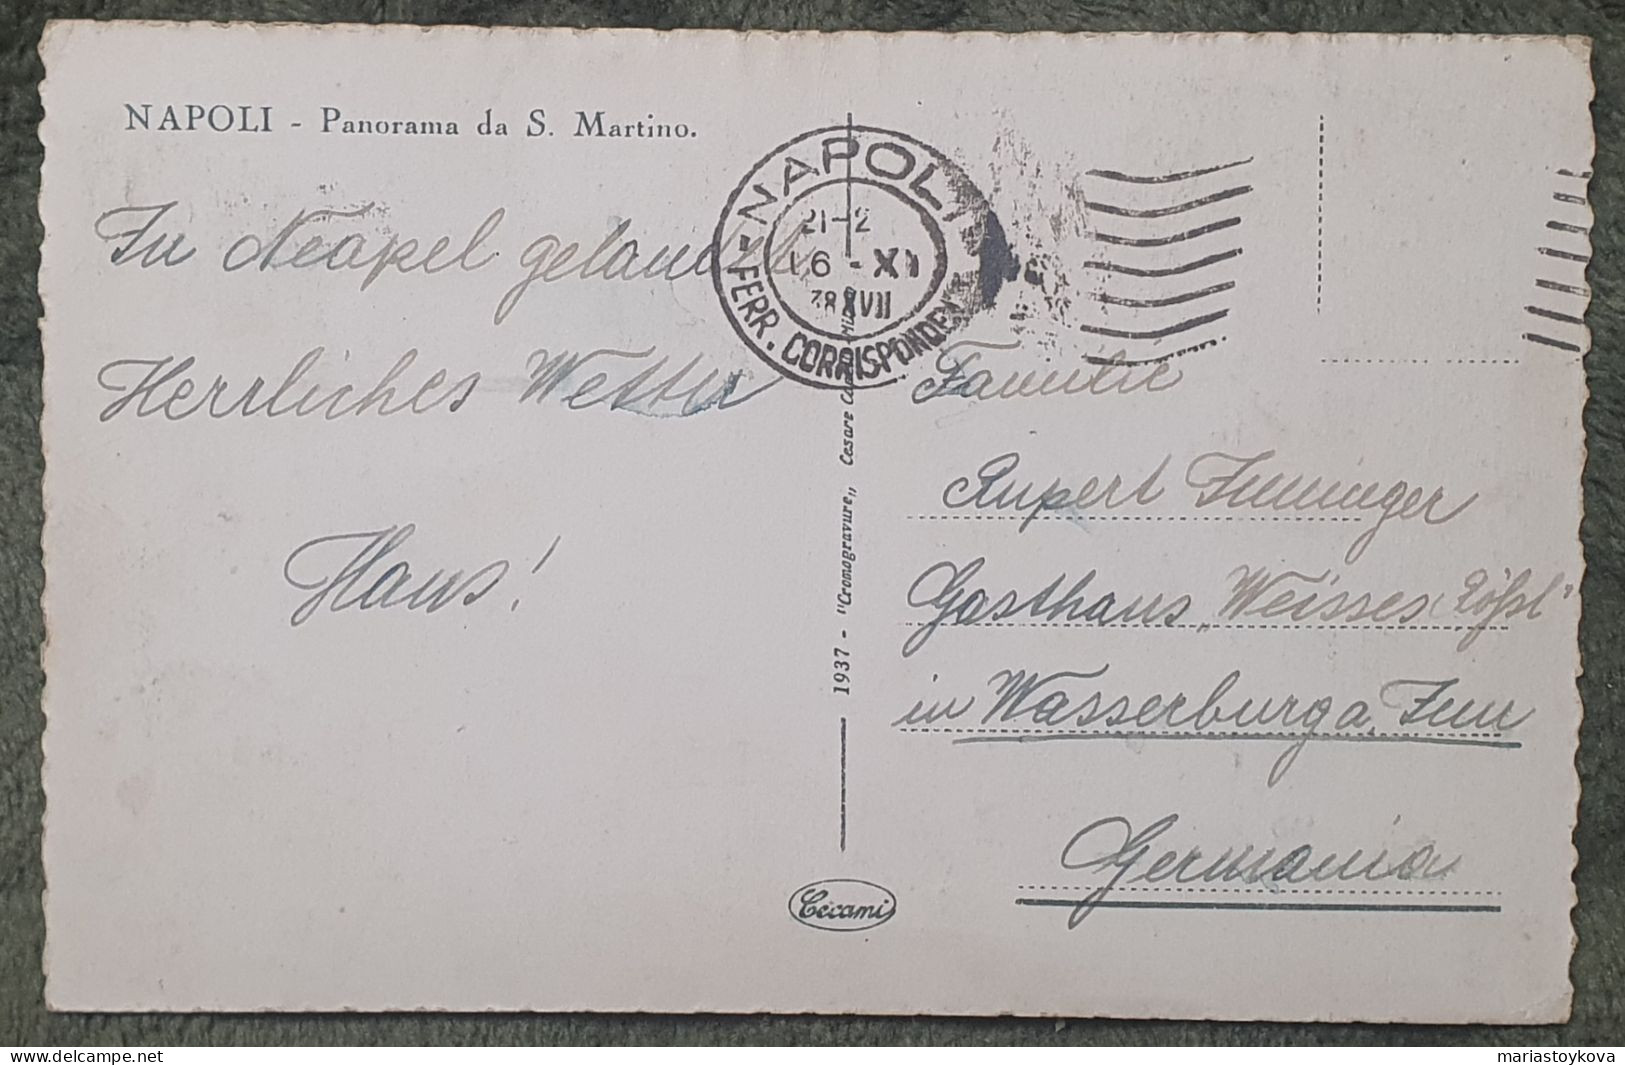 NAPOLI - Panorama da S. Martino.
In Neapel gelandet
Herrliches Wetter
Hans!
NAPOLI
21-2
16 - XI
38 XVII
FERR. CORRISPONDEN
1937 - "Cromogravure„ Cesare
Cecami
Familie
Rupert Inninger
Gasthaus „Weisses Rößl"
in Wasserburg a. Inn
Germania
www.delcampe.net
mariastoykova